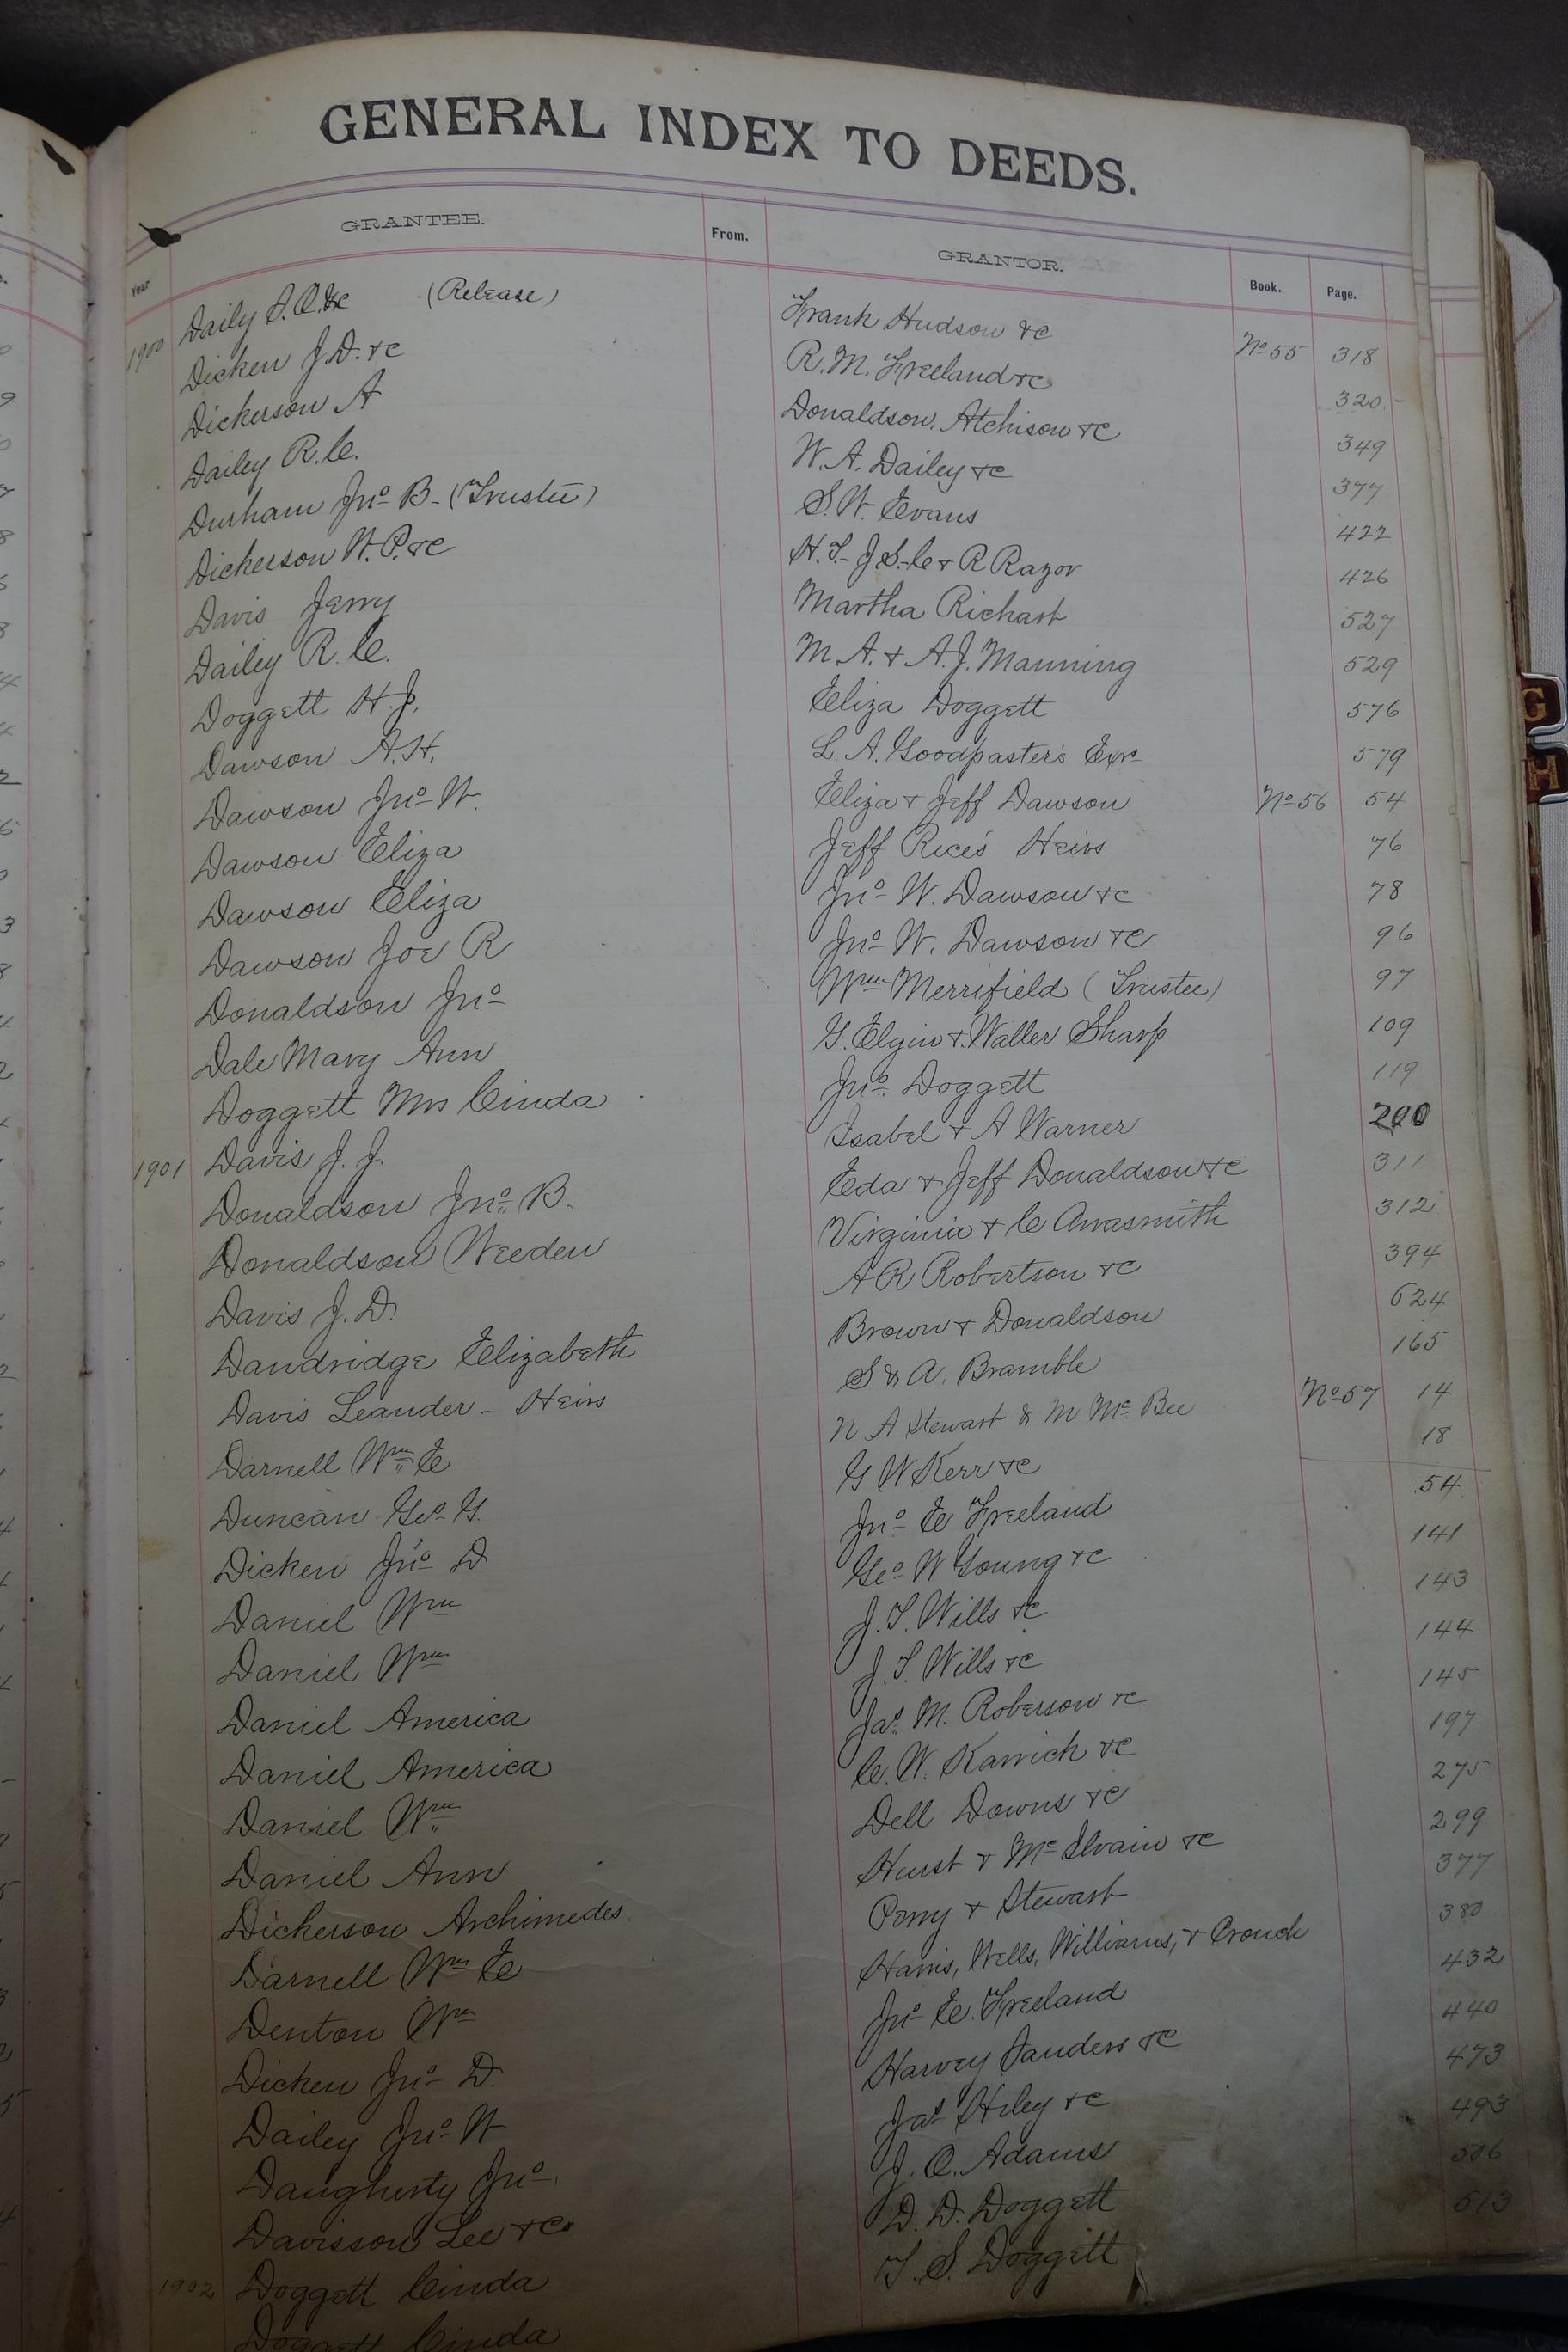 GENERAL INDEX TO DEEDS.
Year GRANTEE. From. GRANTOR. Book. Page.
1900 Daily S.C. &c (Release) Frank Hudson &c No 55 318
Dicken J.D. &c R.M. Freeland &c 320
Dickerson A Donaldson, Atchison &c 349
Dailey R.C. W.A. Dailey &c 377
Durham Jno B- (Trustee) S.W. Evans 422
Dickerson W.P. &c H.T- J.S-C & R Razor 426
Davis Jerry Martha Richart 527
Dailey R.C. M.A. & A.J. Manning 529
Doggett H.J. Eliza Doggett 576
Dawson A.H. L.A. Goodpaster's Exr 579
Dawson Jno W. Eliza & Jeff Dawson No 56 54
Dawson Eliza Jeff Rice's Heirs 76
Dawson Eliza Jno W. Dawson &c 78
Dawson Joe R Jno W. Dawson &c 96
Donaldson Jno Wm Merrifield (Trustee) 97
Dale Mary Ann G. Elgin & Waller Sharp 109
Doggett Mrs Cinda Jno Doggett 119
1901 Davis J.J. Isabel & A Warner 200
Donaldson Jno B. Eda & Jeff Donaldson &c 311
Donaldson Weeden Virginia & C Arrasmith 312
Davis J.D. A R Robertson &c 394
Dandridge Elizabeth Brown & Donaldson 624
Davis Leander - Heirs S & A. Bramble 165
Darnell Wm E N A Stewart & M McBee No 57 14
Duncan Geo G. G W Kerr &c 18
Dicken Jno D Jno E Freeland 54
Daniel Wm Geo W Young &c 141
Daniel Wm J.T. Wills &c 143
Daniel America J.T. Wills &c 144
Daniel America Jas. M. Roberson &c 145
Daniel Wm C.W. Karrick &c 197
Daniel Ann Dell Downs &c 275
Dickerson Archimedes Hurst & McIlvain &c 299
Darnell Wm E Perry & Stewart 377
Denton Wm Harris, Wells, Williams, & Crouch 380
Dicken Jno D. Jno E. Freeland 432
Dailey Jno W Harvey Sanders &c 440
Daugherty Jno Jas Hiley &c 473
Davisson Lee &c J.C. Adams 493
1902 Doggett Cinda D.D. Doggett 506
Doggett Cinda T.S. Doggett 513